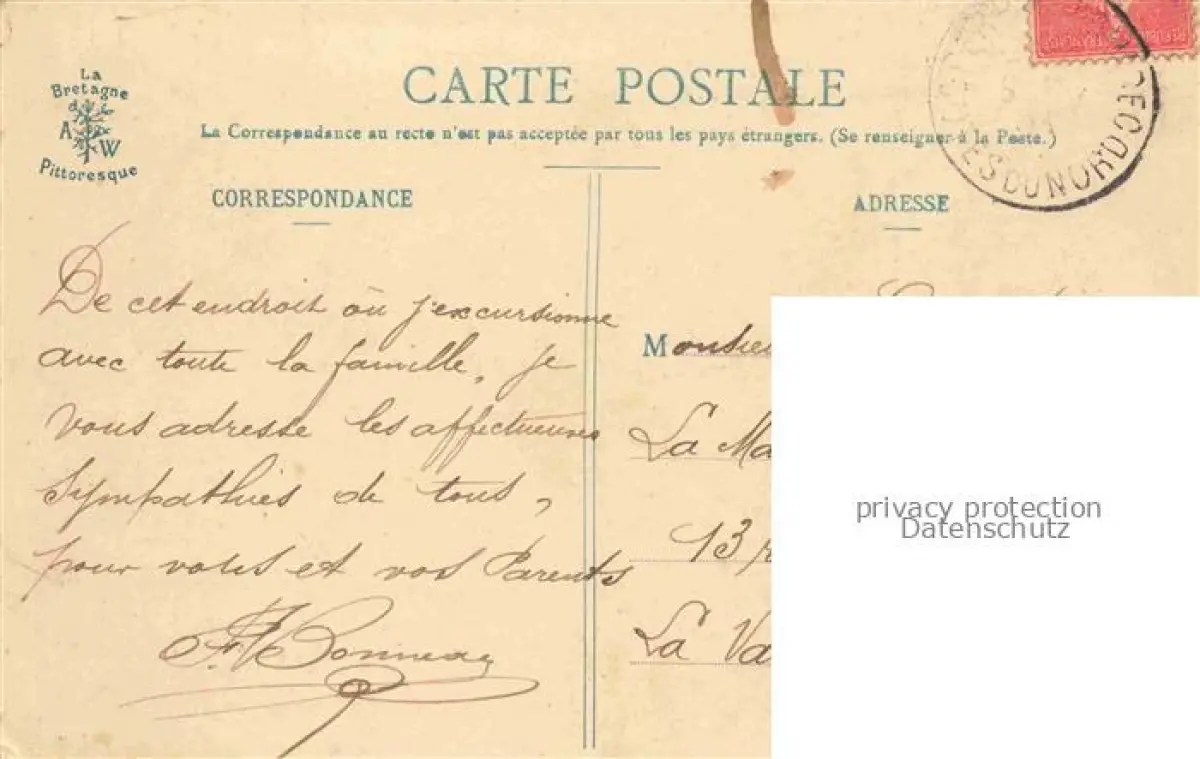 La
Bretagne
A W
Pittoresque
CARTE POSTALE
La Correspondance au recto n'est pas acceptée par tous les pays étrangers. (Se renseigner à la Poste.)
CORRESPONDANCE
ADRESSE
DU NORD
De cet endroit où j'excursionne
avec toute la famille, je
vous adresse les affectueuses
sympathies de tous,
pour vous et vos Parents
Bonneau
La
13
La
privacy protection
Datenschutz